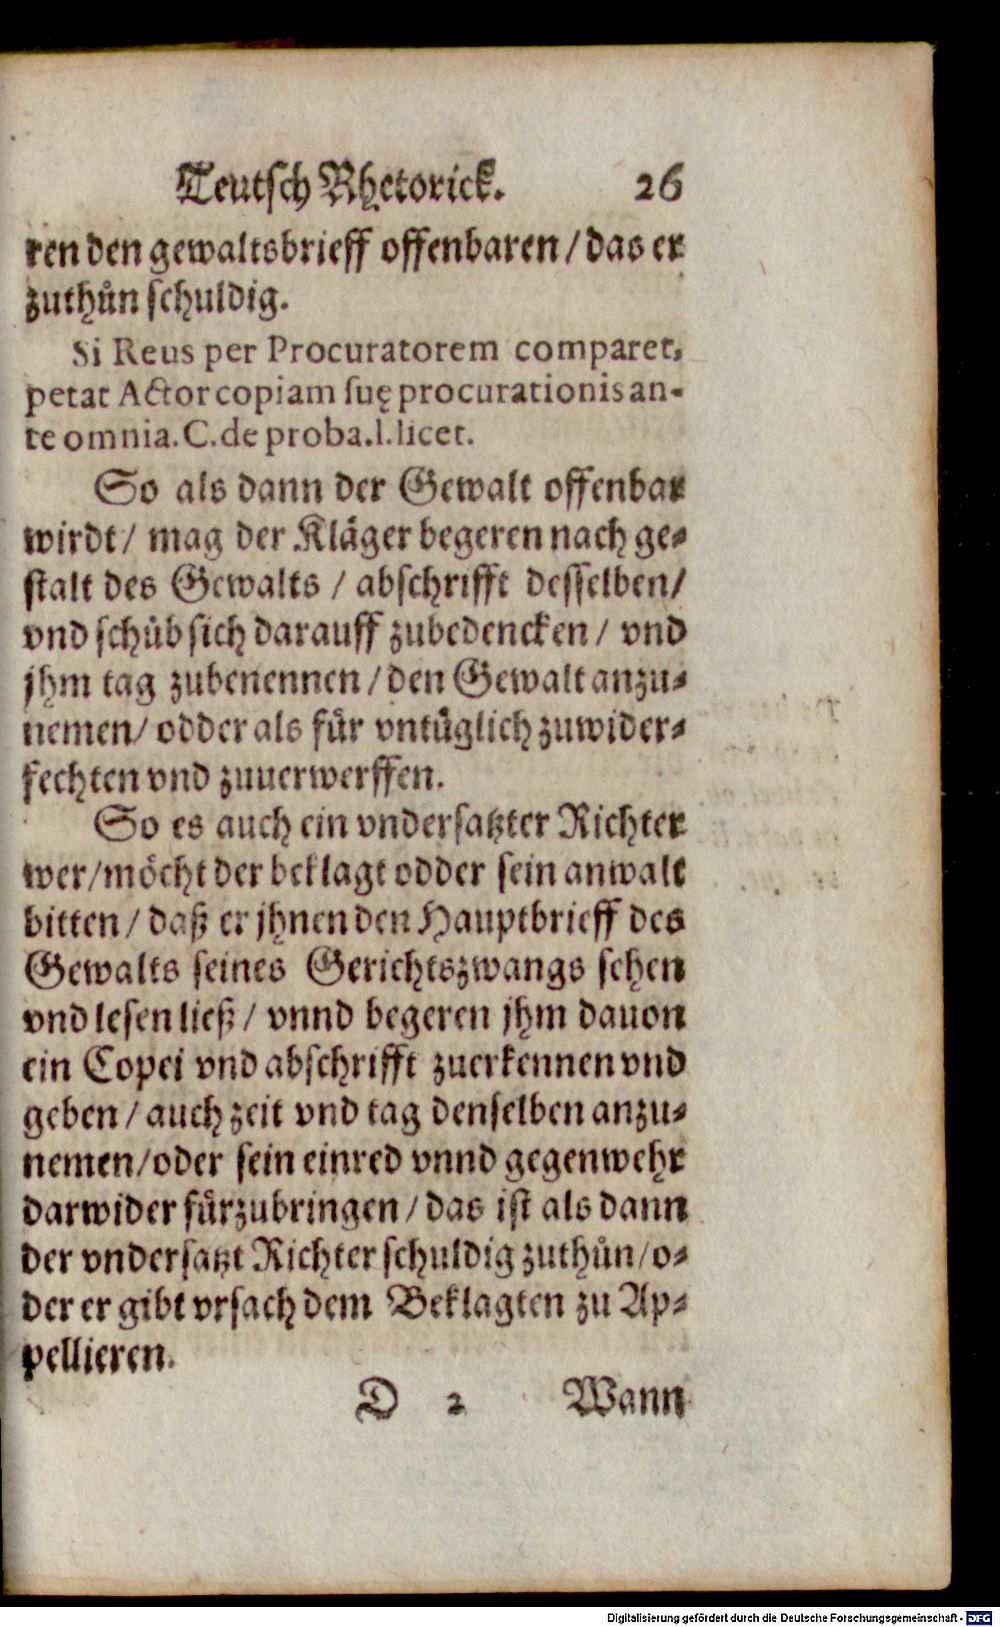 Teutsch Rhetorick. 26
ren den gewaltsbrieff offenbaren / das er
zuthůn schuldig.
Si Reus per Procuratorem comparet,
petat Actor copiam suę procurationis an-
te omnia. C. de proba. l. licet.
So als dann der Gewalt offenbar
wirdt / mag der Kläger begeren nach ge-
stalt des Gewalts / abschrifft desselben /
vnd schůb sich darauff zubedencken / vnd
jhm tag zubenennen / den Gewalt anzu-
nemen / odder als für vntüglich zuwider-
fechten vnd zuuerwerffen.
So es auch ein vndersatzter Richter
wer / möcht der beklagt odder sein anwalt
bitten / daß er jhnen den Hauptbrieff des
Gewalts seines Gerichtszwangs sehen
vnd lesen ließ / vnnd begeren jhm dauon
ein Copei vnd abschrifft zuerkennen vnd
geben / auch zeit vnd tag denselben anzu-
nemen / oder sein einred vnnd gegenwehr
darwider fürzubringen / das ist als dann
der vndersatzt Richter schuldig zuthůn / o-
der er gibt vrsach dem Beklagten zu Ap-
pellieren.
D 2 Wann
Digitalisierung gefördert durch die Deutsche Forschungsgemeinschaft - DFG